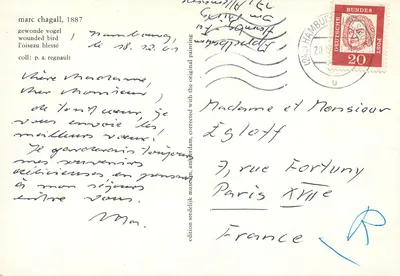 marc chagall, 1887
gewonde vogel
wounded bird
l'oiseau blessé
coll: p. a. regnault
Hambourg,
le 18.12.61
Chère Madame,
cher Monsieur!
de tout cœur je
vous envoie les
meilleurs vœux!
Je garderais toujours
mes souvenirs
délicieuses en pensant
à mon séjour
entre vous.
edition stedelijk museum, amsterdam, corrected with the original painting
HAMBURG
DEUTSCHE BUNDESPOST
20
Madame et Monsieur
Egloff
7, rue Fortuny
Paris XVIIe
France